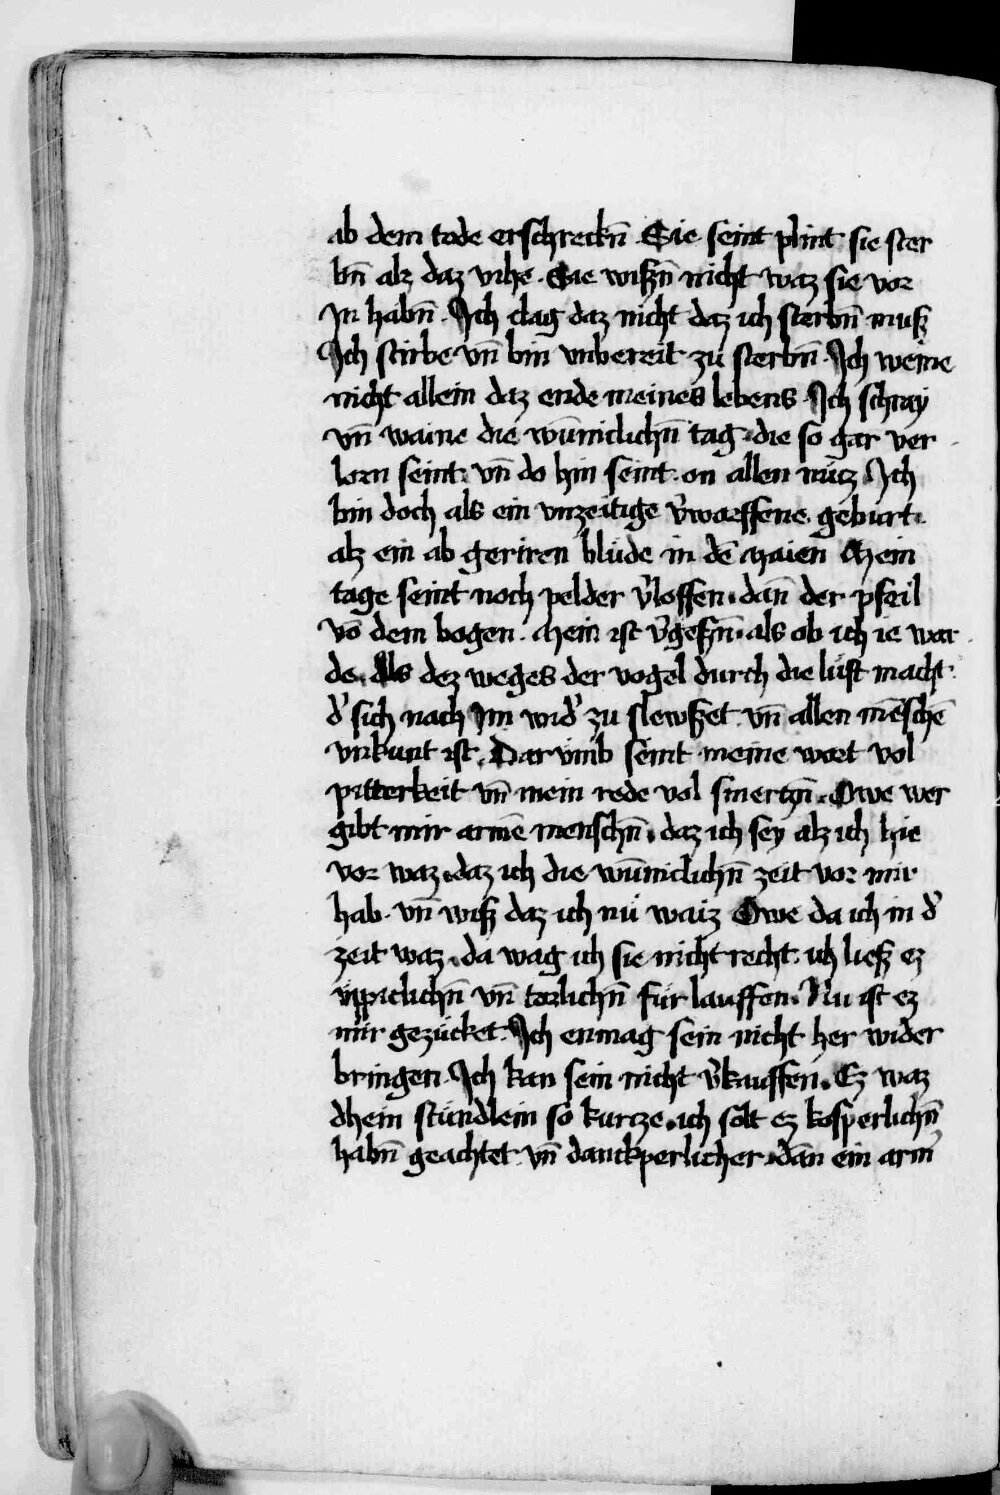 ab dem tode erschreckn̄ . Sie seint plint sie ster
bn̄ alz daz vihe . Sie wißn̄ nicht waz sie vor
In habn̄ . Ich clag daz nicht daz ich sterbn̄ muß
Ich stirbe vn̄ bin vnbereit zu sterbn̄ . Ich weine
nicht allein daz ende meines lebens . Ich schray
vn̄ waine die wu̅niclichn̄ tag . die so gar ver
lorn seint . vn̄ do hin seint . on allen nücz . Ich
bin doch als ein vnzeitige v̾warffene . geburt .
alz ein ab geriren blüde in dē Maien Mein
tage seint noch pelder v̾loffen . dan̄ der pfeil
vō dem bogen . Mein ist v̾geßn̄ . als ob ich ie war
de . Als dez weges der vogel durch die luft macht .
d̾ sich nach Im wid̾ zu slewßet . vn̄ allen mēschē
vnkunt ist . Darümb seint meine wort vol
pitterkeit vn̄ mein rede vol smertzn̄ . Owe wer
gibt mir armē menschn̄ . daz ich sey alz ich hie
vor waz . daz ich die wu̅niclichn̄ zeit vor mir
hab . vn̄ wiß daz ich nü waiz Owe da ich in d̾
zeit waz . da wag ich sie nicht recht . ich ließ ez
üppiclichn̄ vn̄ torlichn̄ für lauffen . Nu ist ez
mir gezücket . Ich enmag sein nicht her wider
bringen . Ich kan sein nicht v̾kauffen . Ez waz
dhein stündlein so kurtze . ich solt ez kosperlichn̄
habn̄ geachtet . vn̄ danckperlicher . dan̄ ein arm̾